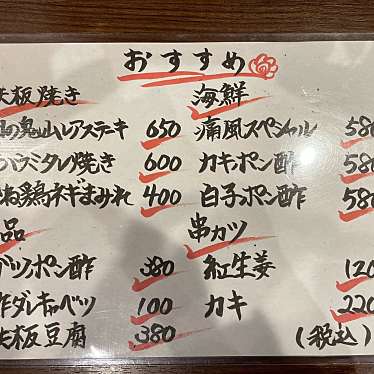 おすすめ
鉄板焼き
レアステーキ 650
ハラミタレ焼き 600
鶏ネギまみれ 400
品
ポン酢 380
ダレキャベツ 100
鉄板豆腐 380
海鮮
痛風スペシャル 580
カキポン酢 580
白子ポン酢 580
串カツ
紅生姜 120
カキ 220
(税込)